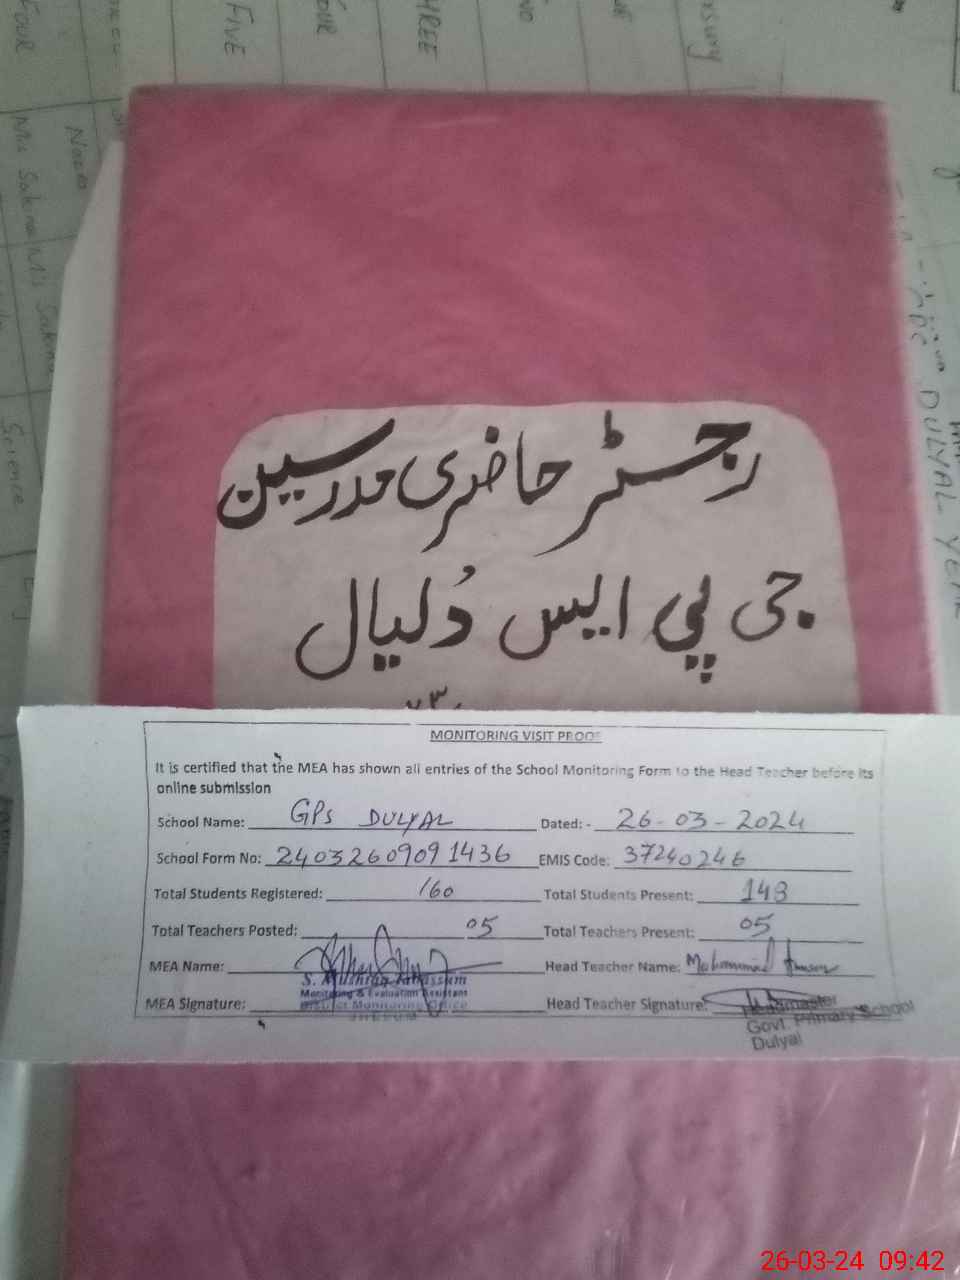 FOUR
FIVE
FOUR
THREE
Miss Sakina
Science
DULYAL
رجسٹر حاضری مدرسین
جی پی ایس دُلیال
MONITORING VISIT PROOF
It is certified that the MEA has shown all entries of the School Monitoring Form to the Head Teacher before its
online submission
School Name: GPS DULYAL Dated: - 26-03-2024
School Form No: 24032609091436 EMIS Code: 37240246
Total Students Registered: 160 Total Students Present: 148
Total Teachers Posted: 05 Total Teachers Present: 05
MEA Name: Head Teacher Name: Mohammad
S. Mushtaq Tabassum
Monitoring & Evaluation Assistant
District Monitoring Office
JHELUM
MEA Signature: Head Teacher Signature:
Headmaster
Govt. Primary School
Dulyal
26-03-24 09:42